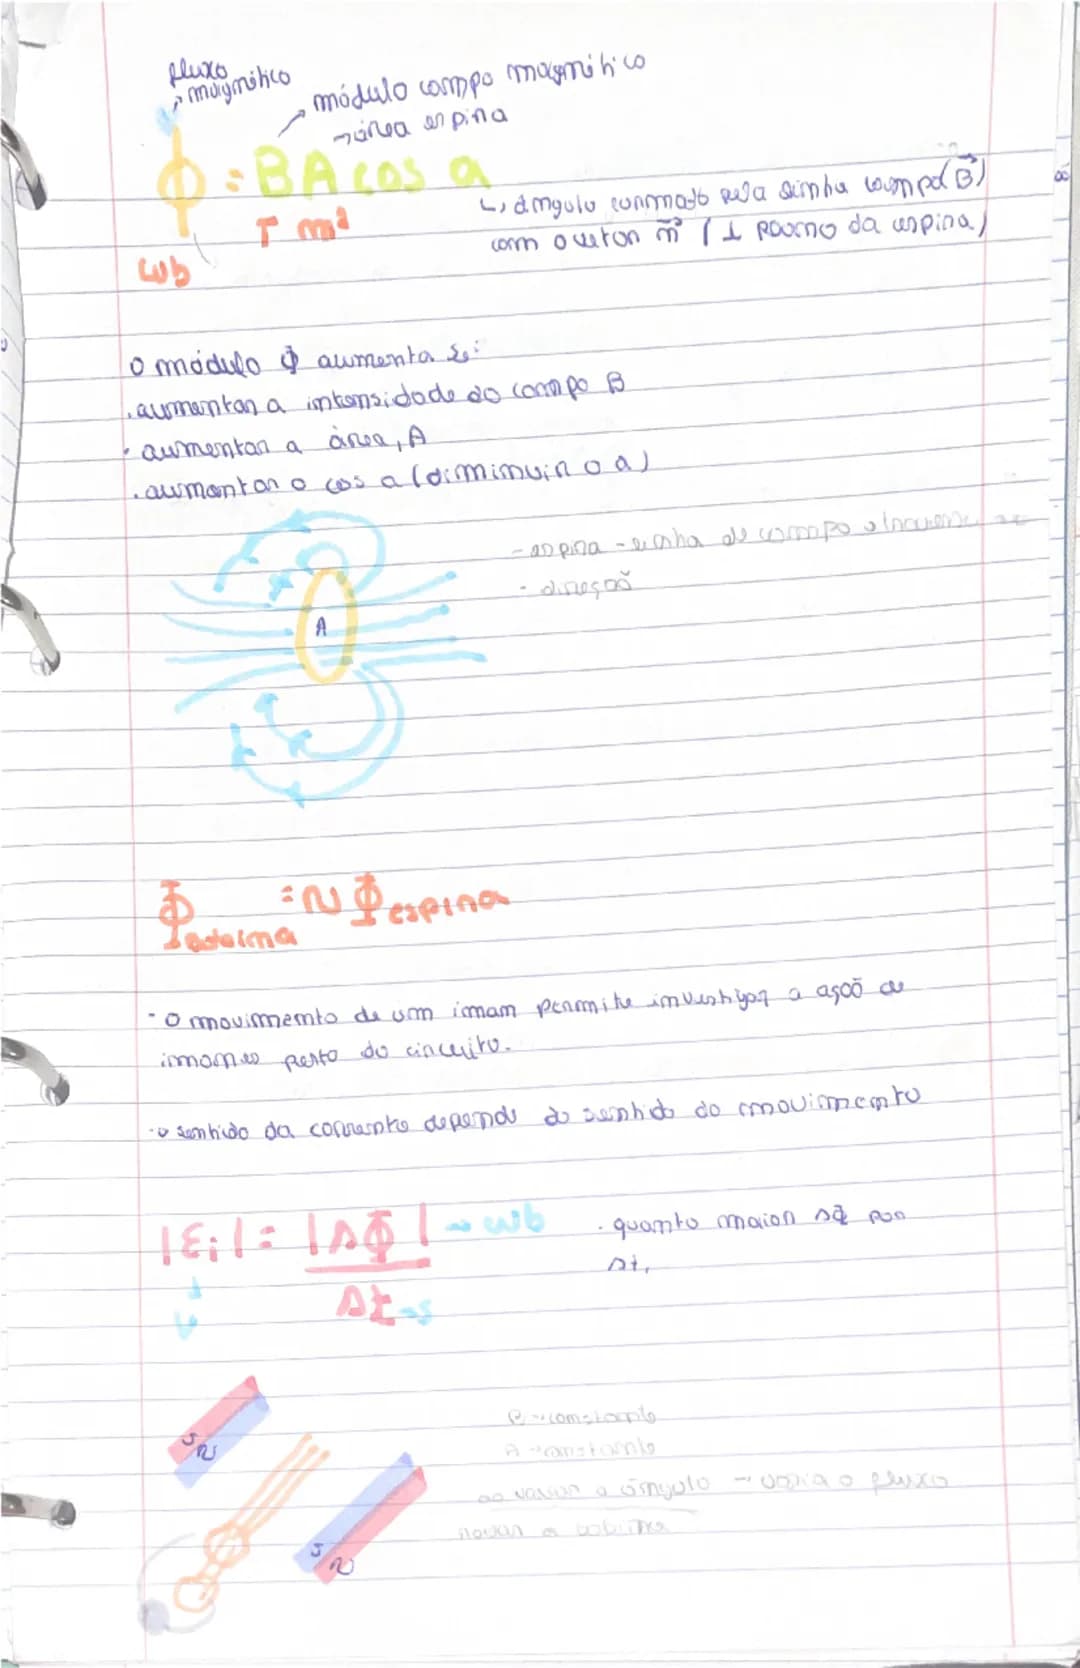 fluxo
magnético
módulo campo magnético
→área espira
Φ = BA cos a
↳ ângulo formado pela linha campo (B⃗)
T m²
com o vetor n⃗ (⊥ plano da espira)
Wb
o módulo Φ aumenta se:
. aumentar a intensidade do campo B
· aumentar a área, A
. aumentar o cos a (diminuir o a)
- espira - linha de campo
- direção
A
Φ = N Φ espira
bobina
- o movimento de um íman permite investigar a ação de
ímanes perto do circuito.
· o sentido da corrente depende do sentido do movimento
|εi| = |ΔΦ| → Wb
· quanto maior ΔΦ por
Δt,
Δt → s
V
B → constante
S
N
A → constante
ao variar o ângulo → varia o fluxo
rodar a bobina
S
N